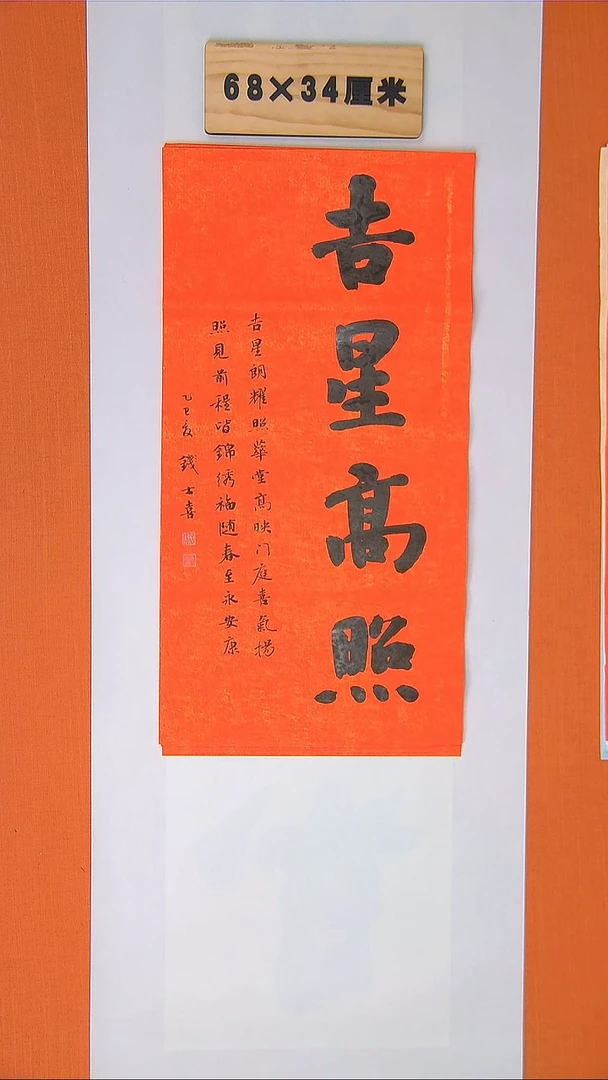 68×34厘米
吉星高照
吉星朗耀照華堂高映门庭喜氣揚
照見前程皆錦绣福随春至永安康
乙巳夏 錢士喜